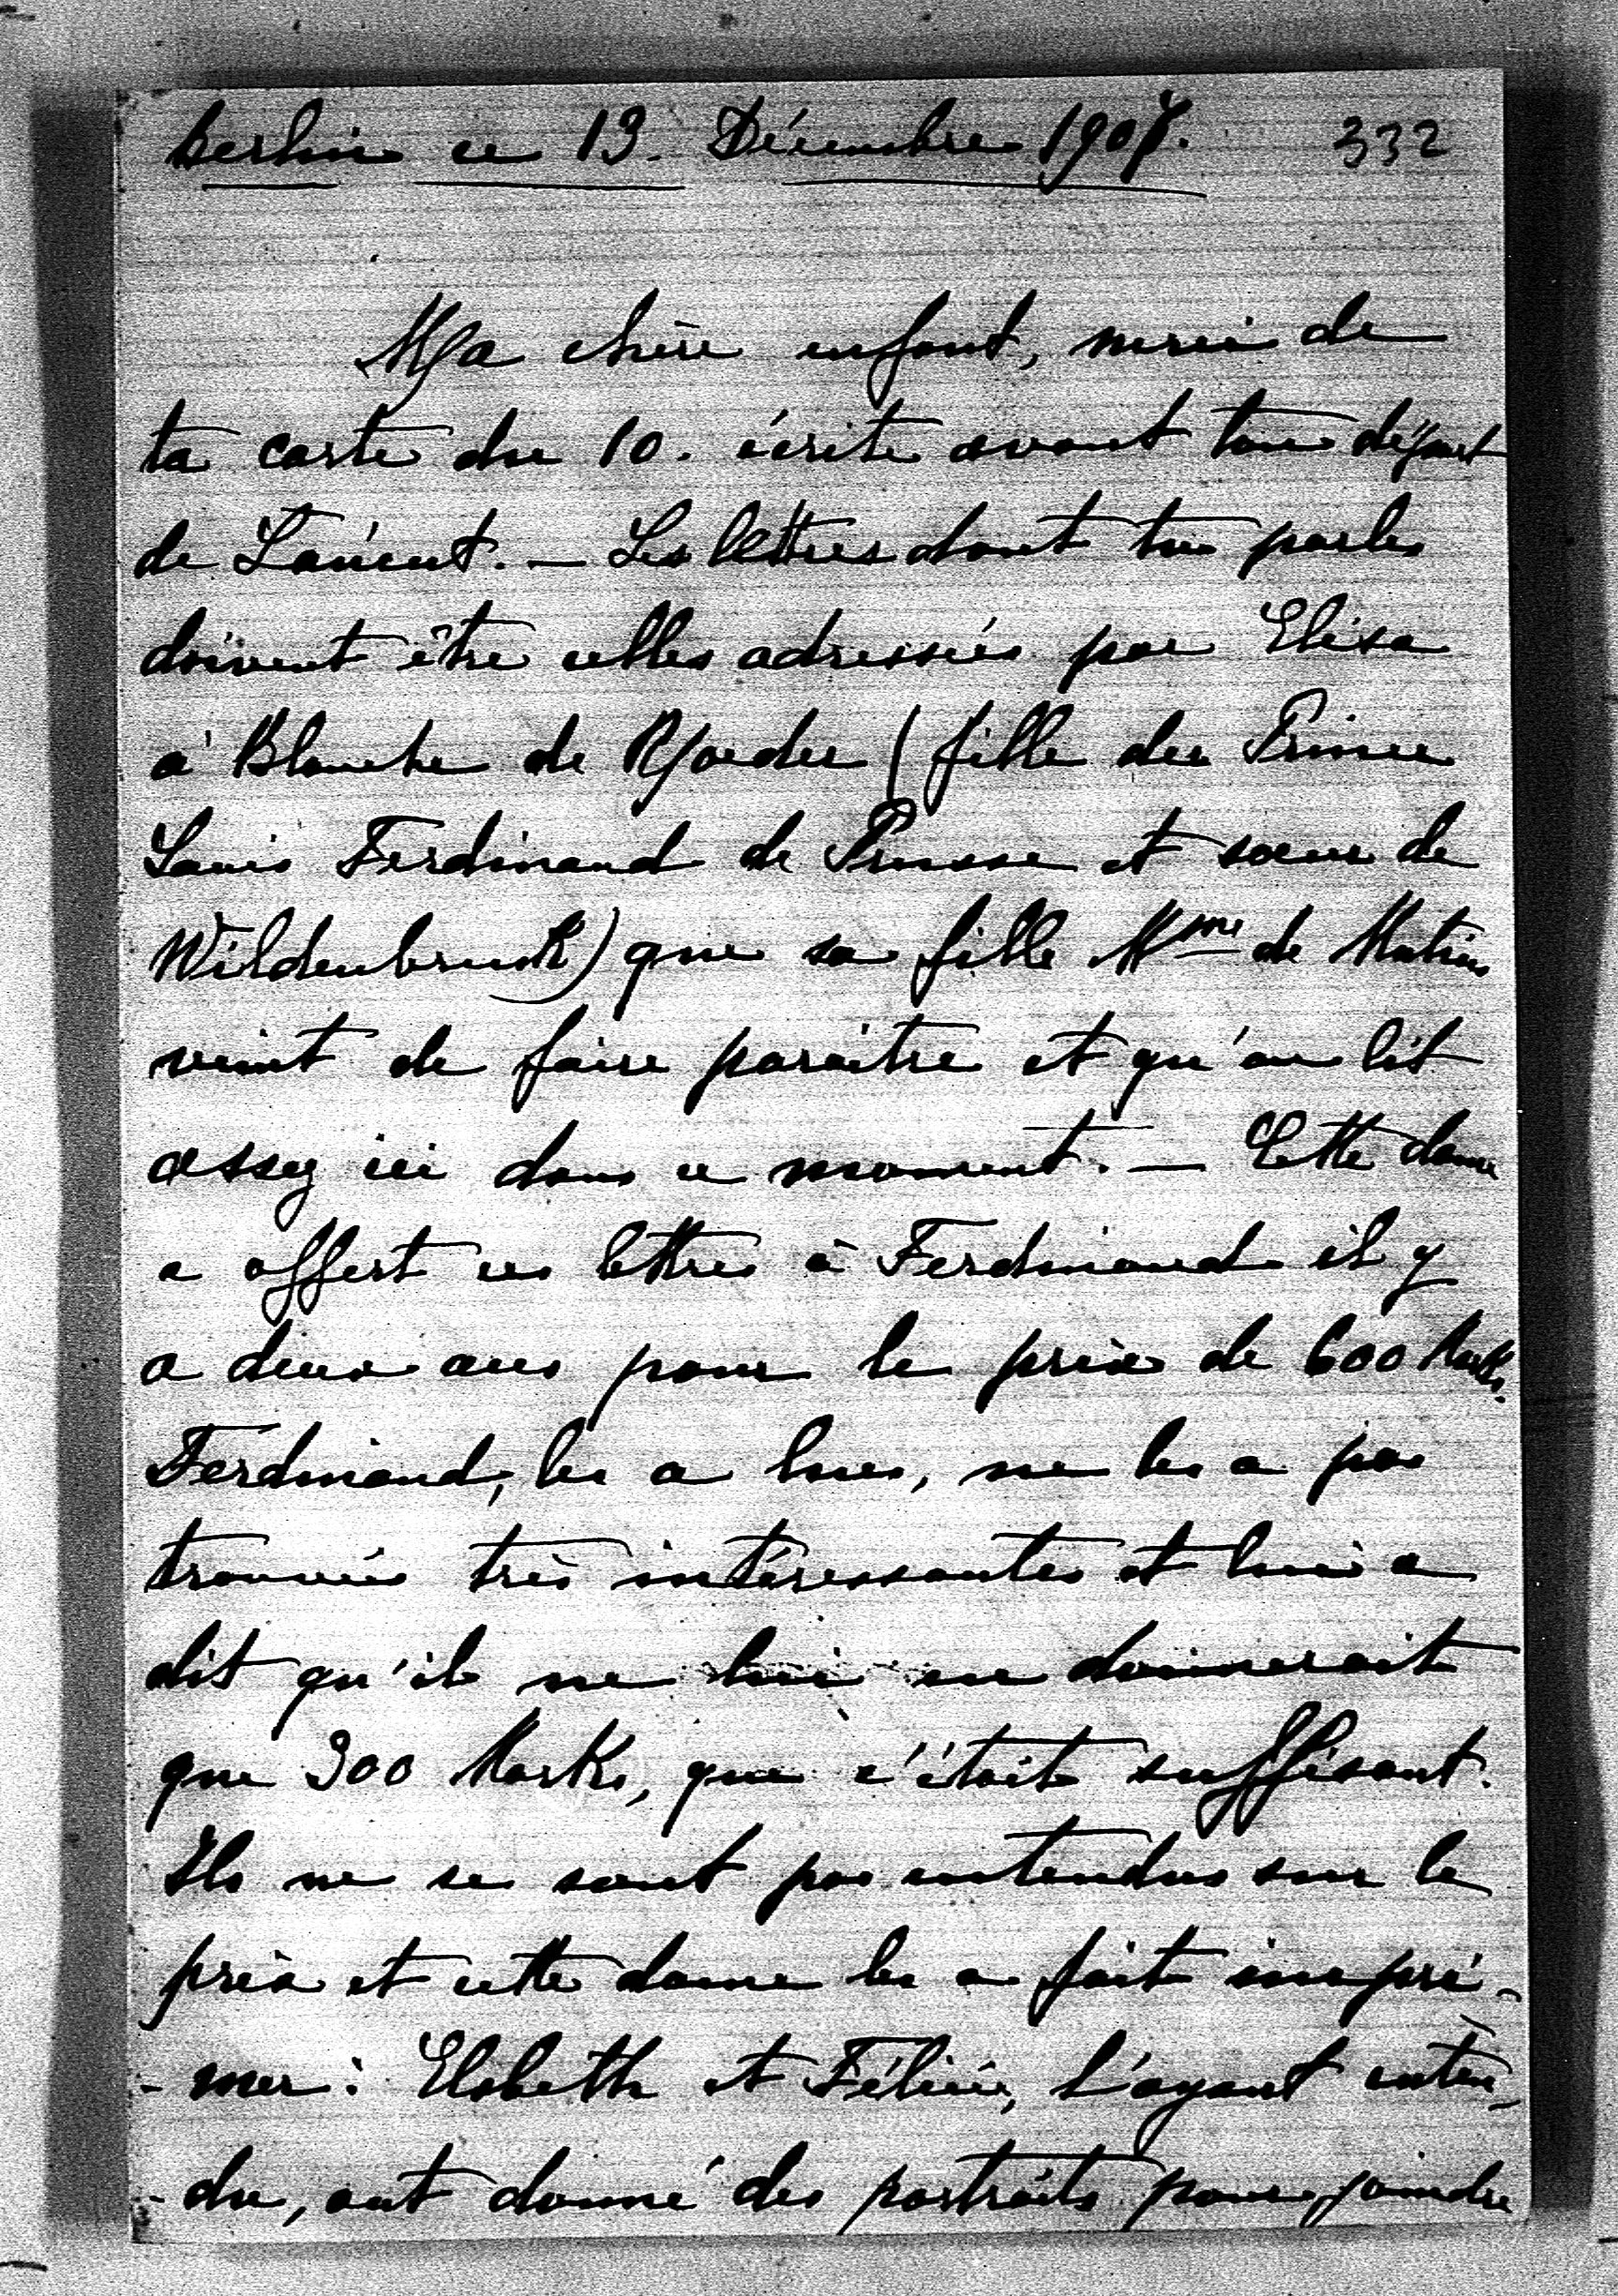 Berlin ce 13. Décembre 1907. 332
Ma chère enfant, merci de
ta carte du 10. écrite avant ton départ
de Lancut. — Les lettres dont tu parles
doivent être celles adressées par Elisa
à Blanche de Roeder (fille du Prince
Louis Ferdinand de Prusse et soeur de
Wildenbruch) que sa fille Mme de
vient de faire paraître et qu'on lit
assez ici dans ce moment. — Cette dame
a offert ces lettres à Ferdinand il y
a deux ans pour le prix de 600 Marks.
Ferdinand, les a lues, ne les a pas
trouvées très intéressantes et lui a
dit qu'il ne lui en donnerait
que 300 Marks, que c'était suffisant.
Ils ne se sont pas entendus sur le
prix et cette dame les a fait impri-
-mer. Elsbeth et Félicie, l'ayant enten-
-du, ont donné des portraits pour joindre